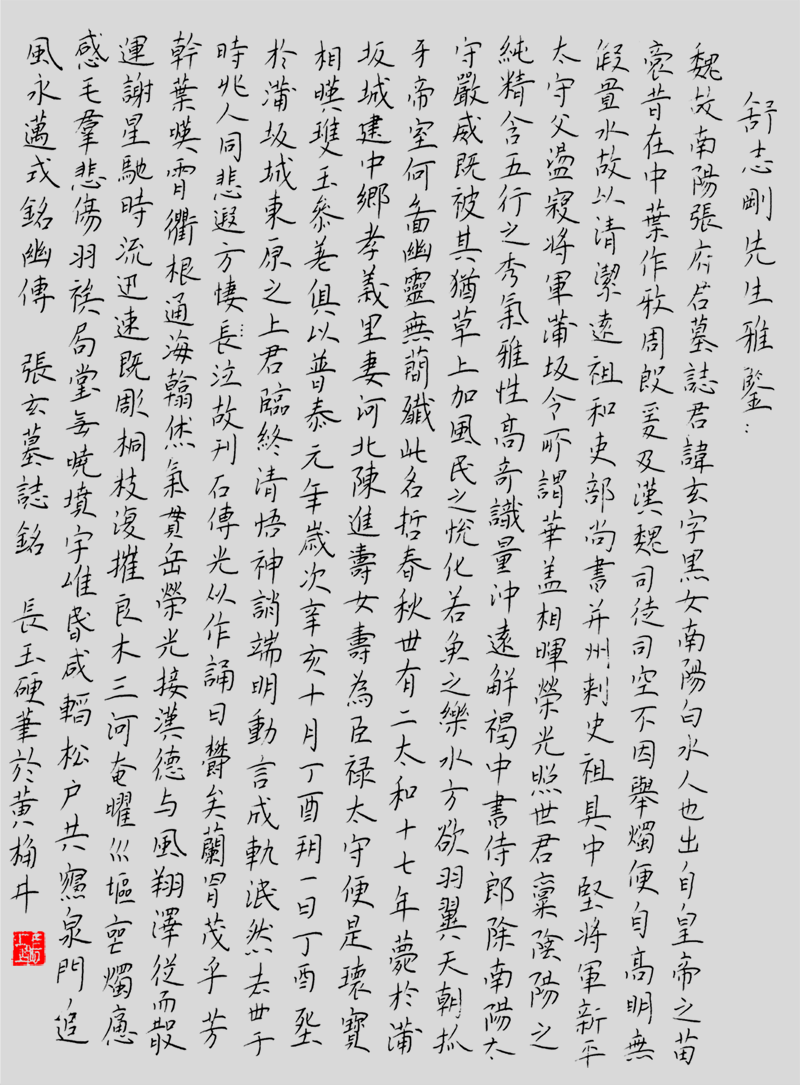 舒志剛先生雅鑒：
魏故南陽張府君墓誌君諱玄字黑女南陽白水人也出自皇帝之苗
裔昔在中葉作牧周殷爰及漢魏司徒司空不因舉燭便自高明無
假置水故以清潔遠祖和吏部尚書并州刺史祖具中堅將軍新平
太守父盪寇將軍蒲坂令所謂華盖相暉榮光照世君稟陰陽之
純精含五行之秀氣雅性高奇識量沖遠解褐中書侍郎除南陽太
守嚴威既被其猶草上加風民之悅化若魚之樂水方欲羽翼天朝抓
牙帝室何啚幽靈無簡殲此名哲春秋卅有二太和十七年薨於蒲
坂城建中鄉孝義里妻河北陳進壽女壽為巨祿太守便是瓌寶
相暎玉參差俱以普泰元年歲次辛亥十月丁酉朔一日丁酉塟
於蒲坂城東原之上君臨終清悟神誚端明動言成軌泯然去世于
時兆人同悲遐方悽長泣故刊石傳光以作誦曰鬱矣蘭冑茂乎芳
幹葉暎霄衢根通海翰烋氣貫岳榮光接漢德与風翔澤從雨散
運謝星馳時流迅速既彫桐枝復摧良木三河奄曜巛塸燭
感毛羣悲傷羽族扃堂無曉墳宇唯昏咸韜松戶共寢泉門追
風永邁式銘幽傳　張玄墓誌銘　長玉硬筆於黃桷井